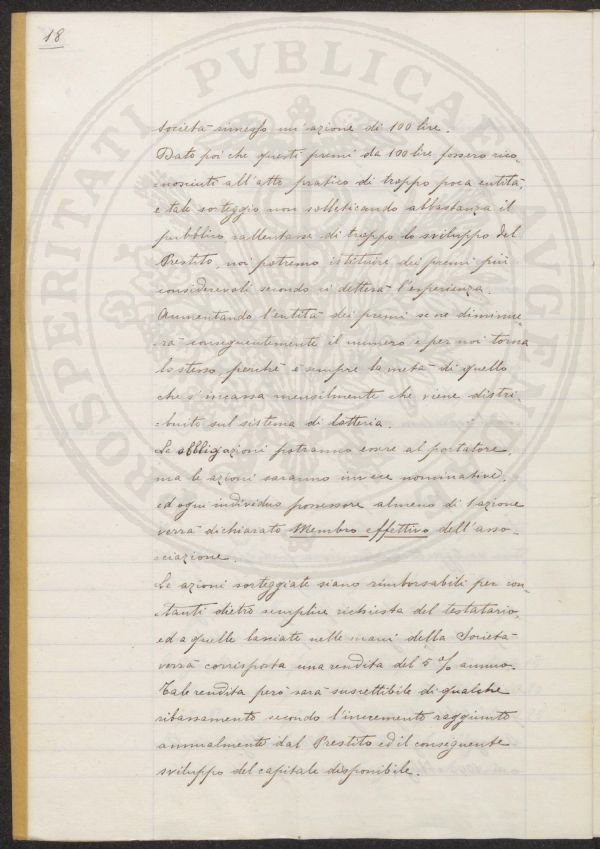 18
società stinesso un'azione di 100 lire.
Dato poi che questi premi da 100 lire fossero rico-
nosciuti all'atto pratico di troppo poca entità,
e tale sorteggio non solleticando abbastanza il
pubblico rallentasse di troppo lo sviluppo del
Prestito, noi potremo istituire dei premi più
considerevoli secondo ci detterà l'esperienza.
Aumentando l'entità dei premi se ne diminue-
rà conseguentemente il numero e per noi torna
lo stesso perchè è sempre la metà di quello
che s'incassa mensilmente che viene distri-
buito sul sistema di lotteria.
Le obbligazioni potranno essere al portatore,
ma le azioni saranno invece nominative,
ed ogni individuo possessore almeno di 1 azione
verrà dichiarato Membro effettivo dell'asso-
ciazione.
Le azioni sorteggiate siano rimborsabili per con-
tanti dietro semplice richiesta del testatario,
ed a quelle lasciate nelle mani della Società
verrà corrisposta una rendita del 5 % annuo.
Tale rendita però sarà suscettibile di qualche
ribassamento secondo l'incremento raggiunto
annualmente dal Prestito ed il conseguente
sviluppo del capitale disponibile.
PROSPERITATI PVBLICAE AVGENDAE